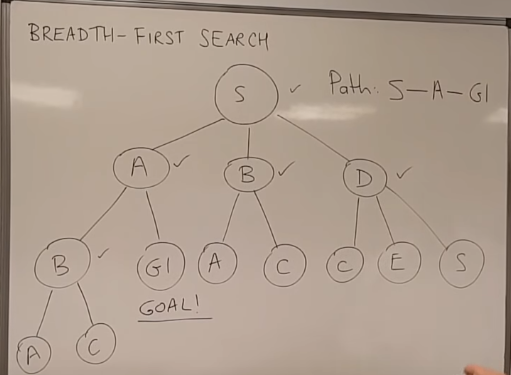 BREADTH-FIRST SEARCH
S ✓ Path: S-A-G1
A ✓ B ✓ D ✓
B ✓ G1 A C C E S
GOAL!
A C